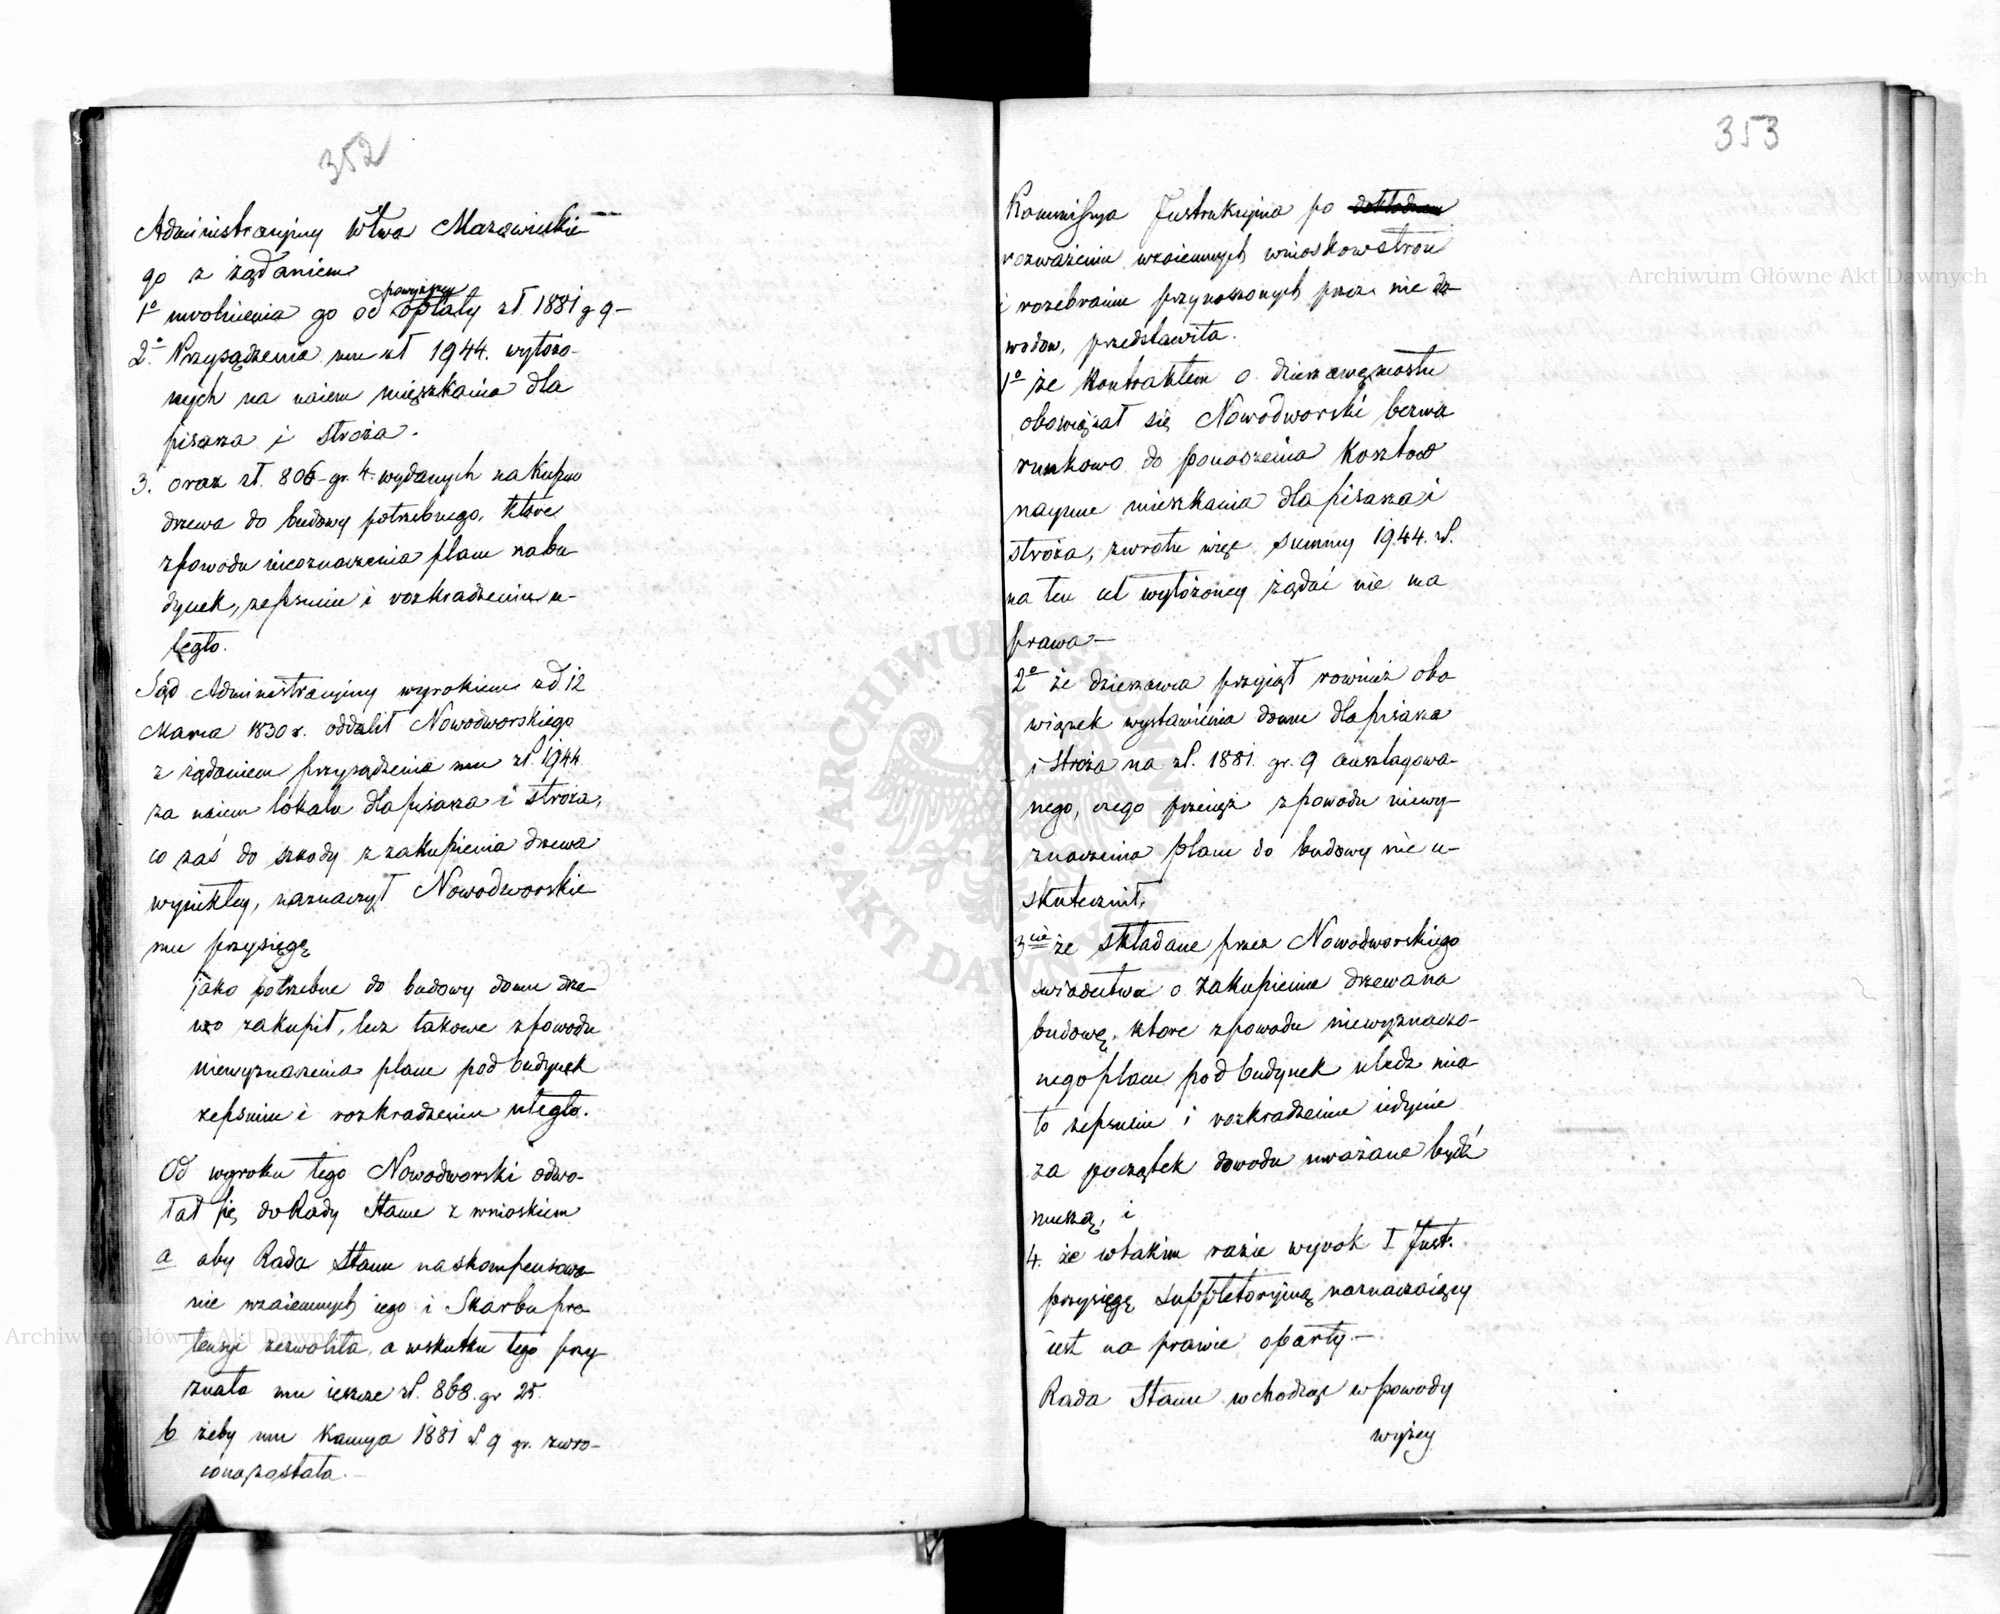 352
Administracyiny Wtwa Mazowieckie-
go z żądaniem
1o uwolnienia go od powyższey opłaty zł. 1881 g 9-
2o. Przysądzenia mu zł 1944. wyłożo-
nych na naiem mięszkania dla
pisarza i stroża.
3. oraz zł. 806 gr. 4. wydanych na kupno
drzewa do budowy potrzebnego, które
z powodu nieoznaczenia placu na bu-
dynek, zepsuciu i rozkradzeniu u-
legło.
Sąd Administracyiny wyrokiem z d. 12
Marca 1830 r. oddalił Nowodworskiego
z żądaniem przysądzenia mu zł. 1944
za naiem lokalu dla pisarza i stroża,
co zaś do szkody z zakupienia drzewa
wynikłey, naznaczył Nowodworskie
mu przysięgę
jako potrzebne do budowy domu drze-
wo zakupił, lecz takowe z powodu
niewyznaczenia placu pod budynek
zepsuciu i rozkradzeniu uległo.
Od wyroku tego Nowodworski odwo-
łał się do Rady Stanu z wnioskiem
a aby Rada Stanu na skompensowa-
nie wzaiemnych iego i Skarbu pre
tensyi zezwoliła, a wskutku tego przy-
znała mu ieszcze zł. 868. gr 25.
b żeby mu kaucya 1881 zł. 9 gr. zwró-
cona została.
353
Kommissya Instrukcyina po dokładnem
rozważeniu wzaiemnych wnioskow stron
i rozebraniu przynoszonych przez nie do-
wodow, przedstawiła.
1o że kontraktem o dzierzawę mostu
obowiązał się Nowodworski bezwa
runkowo do ponoszenia kosztow
naymu mieszkania dla pisarza i
stróża, zwrotu więc summy 1944. zł.
na ten cel wyłożoney żądać nie ma
prawa-
2o że dzierzawca przyiął rownież obo
wiązek wystawienia domu dla pisarza
i stroża na zł. 1881. gr. 9 anszlagowa-
nego, czego przecież z powodu niewy-
znaczenia placu do budowy nie u-
skutecznił,
3cie że składane przez Nowodworskiego
swiadectwa o zakupienie drzewa na
budowę, ktore z powodu niewyznaczo-
nego placu pod budynek uledz mia
ło zepsuciu i rozkradzeniu iedynie
za początek dowodu uważane bydź
muszą, i
4. że w takim razie wyrok I Inst.
przysięgę suppletoryiną naznaczaiący
iest na prawie oparty.-
Rada Stanu wchodząc w powody
wyżey
Archiwum Główne Akt Dawnych
Archiwum Główne Akt Dawnych